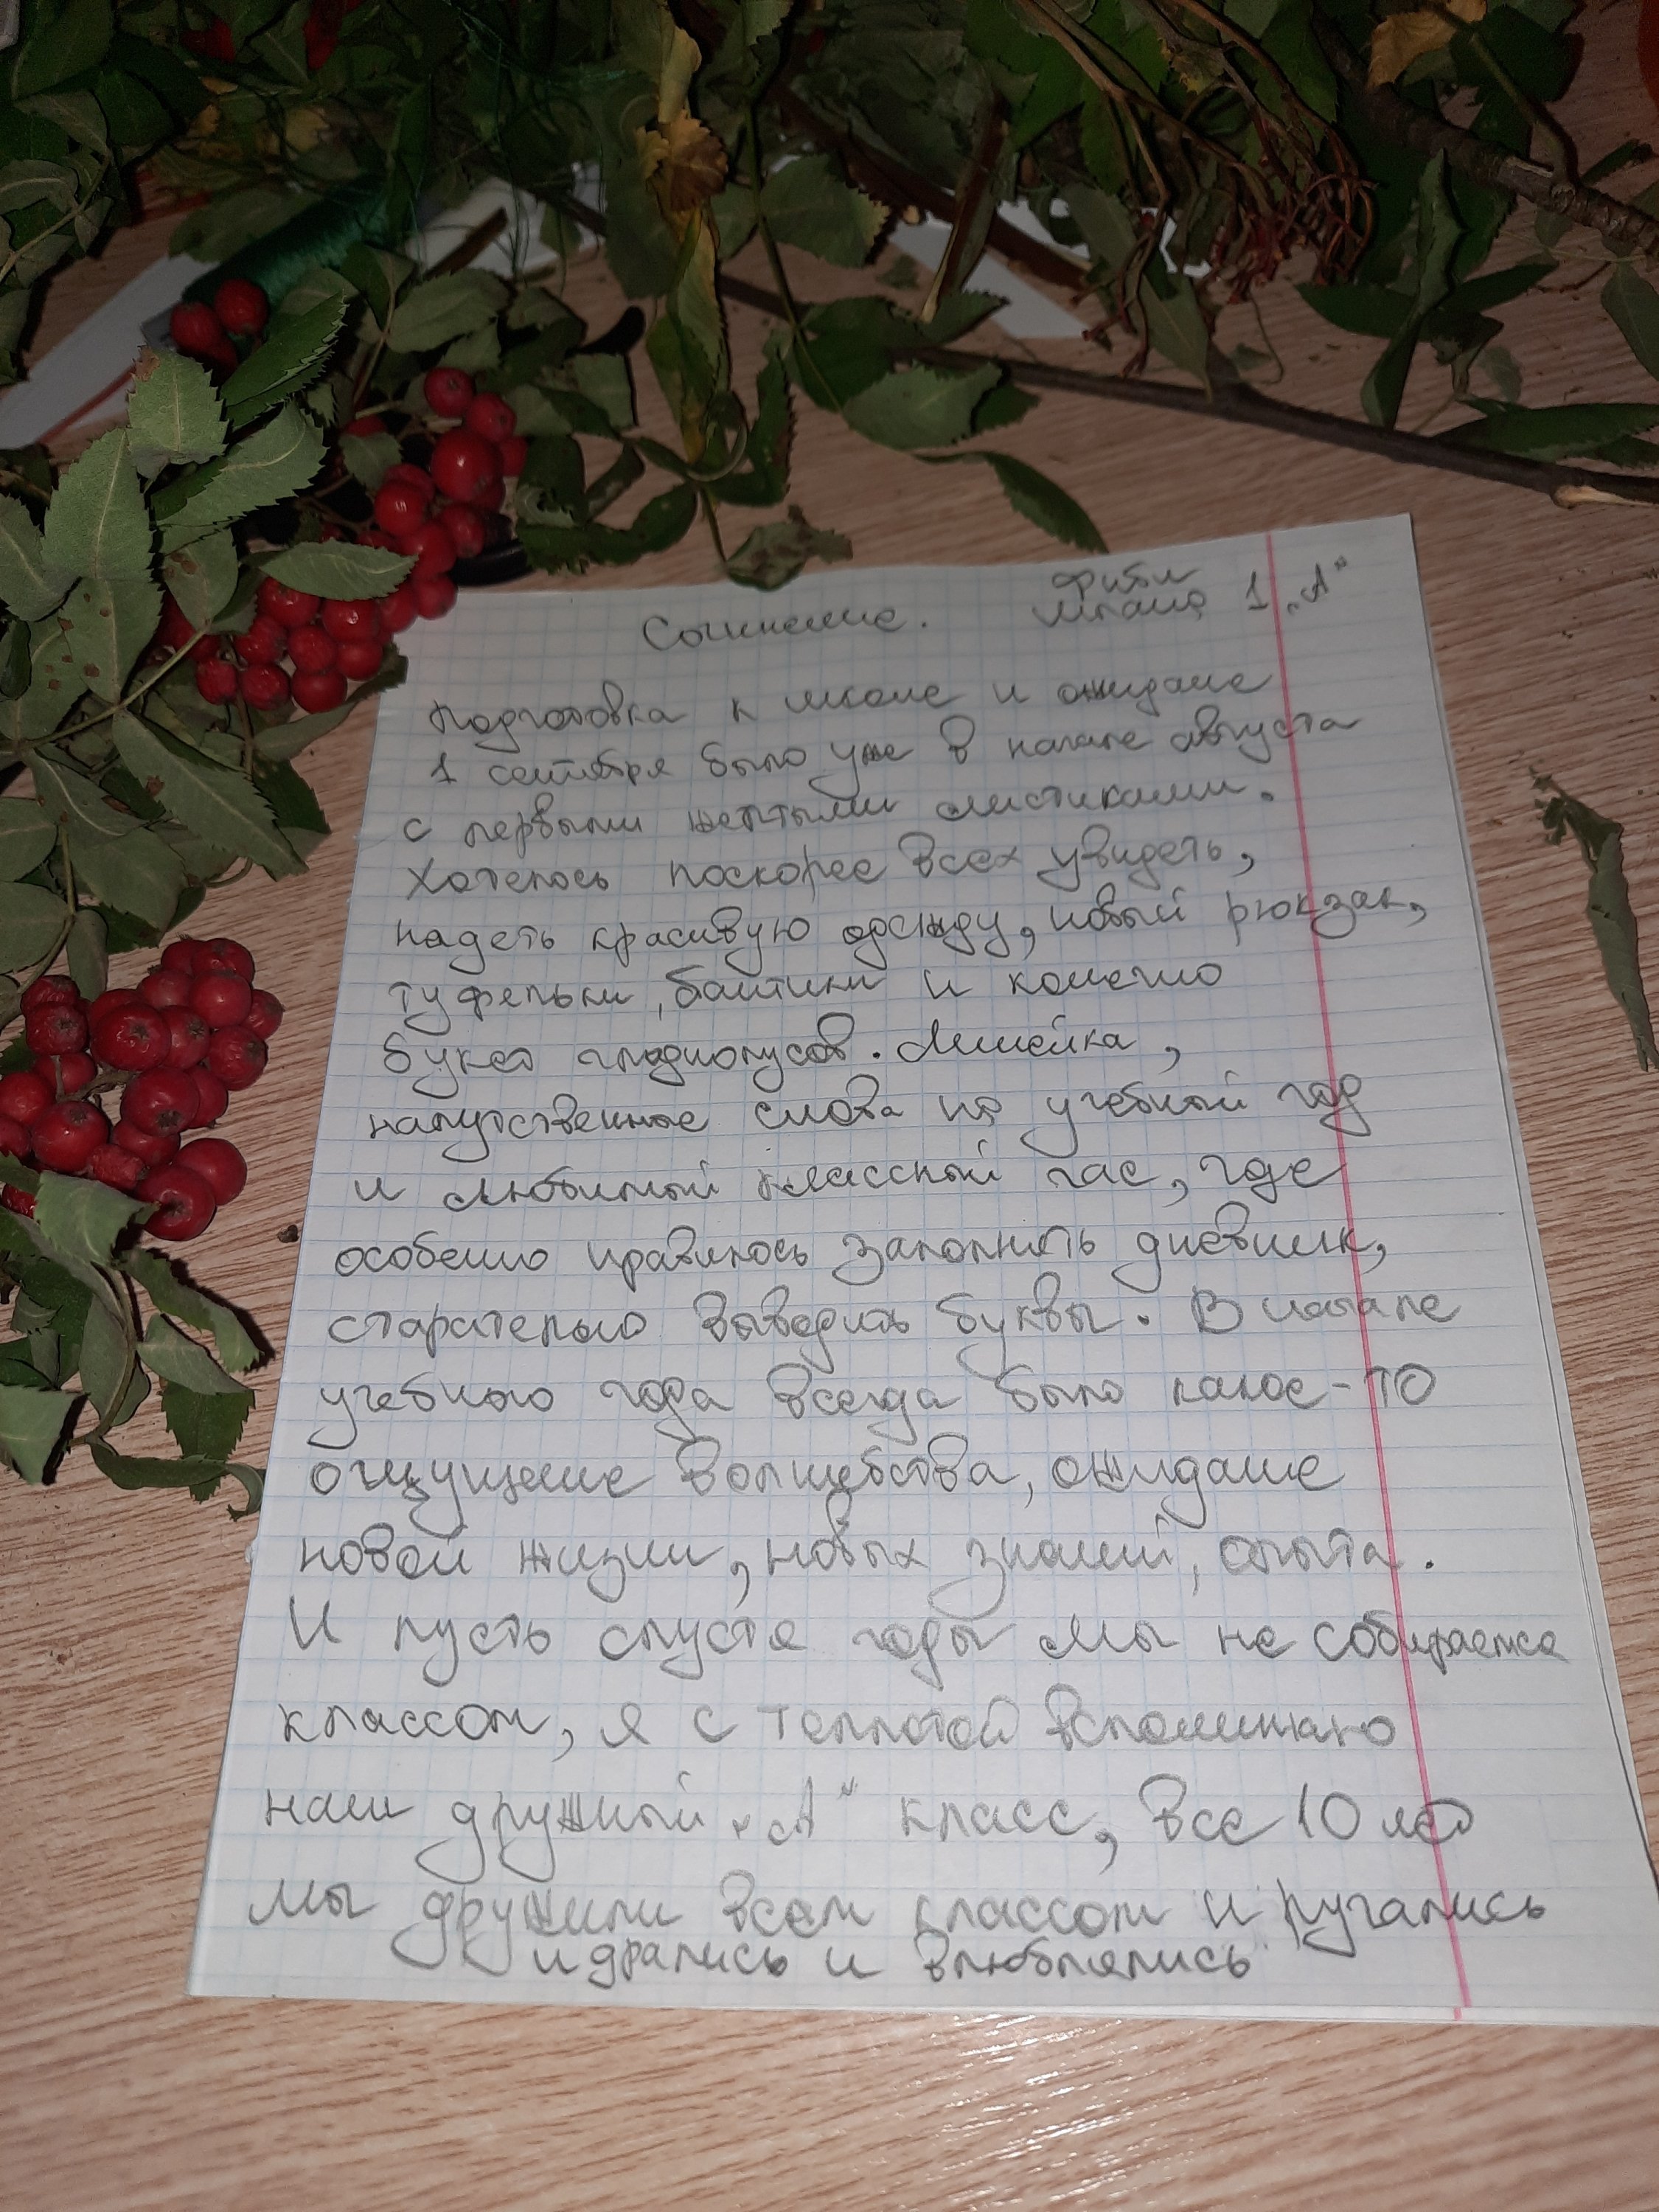 Сочинение. Фиби
Млаиа 1 „А"
Подготовка к школе и ожидание
1 сентября было уже в начале августа
с первыми желтыми листиками.
Хотелось поскорее всех увидеть,
надеть красивую одежду, новый рюкзак,
туфельки, бантики и конечно
букет гладиолусов. Линейка,
напутственные слова на учебный год
и любимый классный час, где
особенно нравилось заполнять дневник,
старательно выводить буквы. В начале
учебного года всегда было какое-то
ощущение волшебства, ожидание
новой жизни, новых знаний, опыта.
И пусть спустя годы мы не собираемся
классом, я с теплотой вспоминаю
наш дружный „А" класс, все 10 лет
мы дружили всем классом и ругались
и дрались и влюблялись